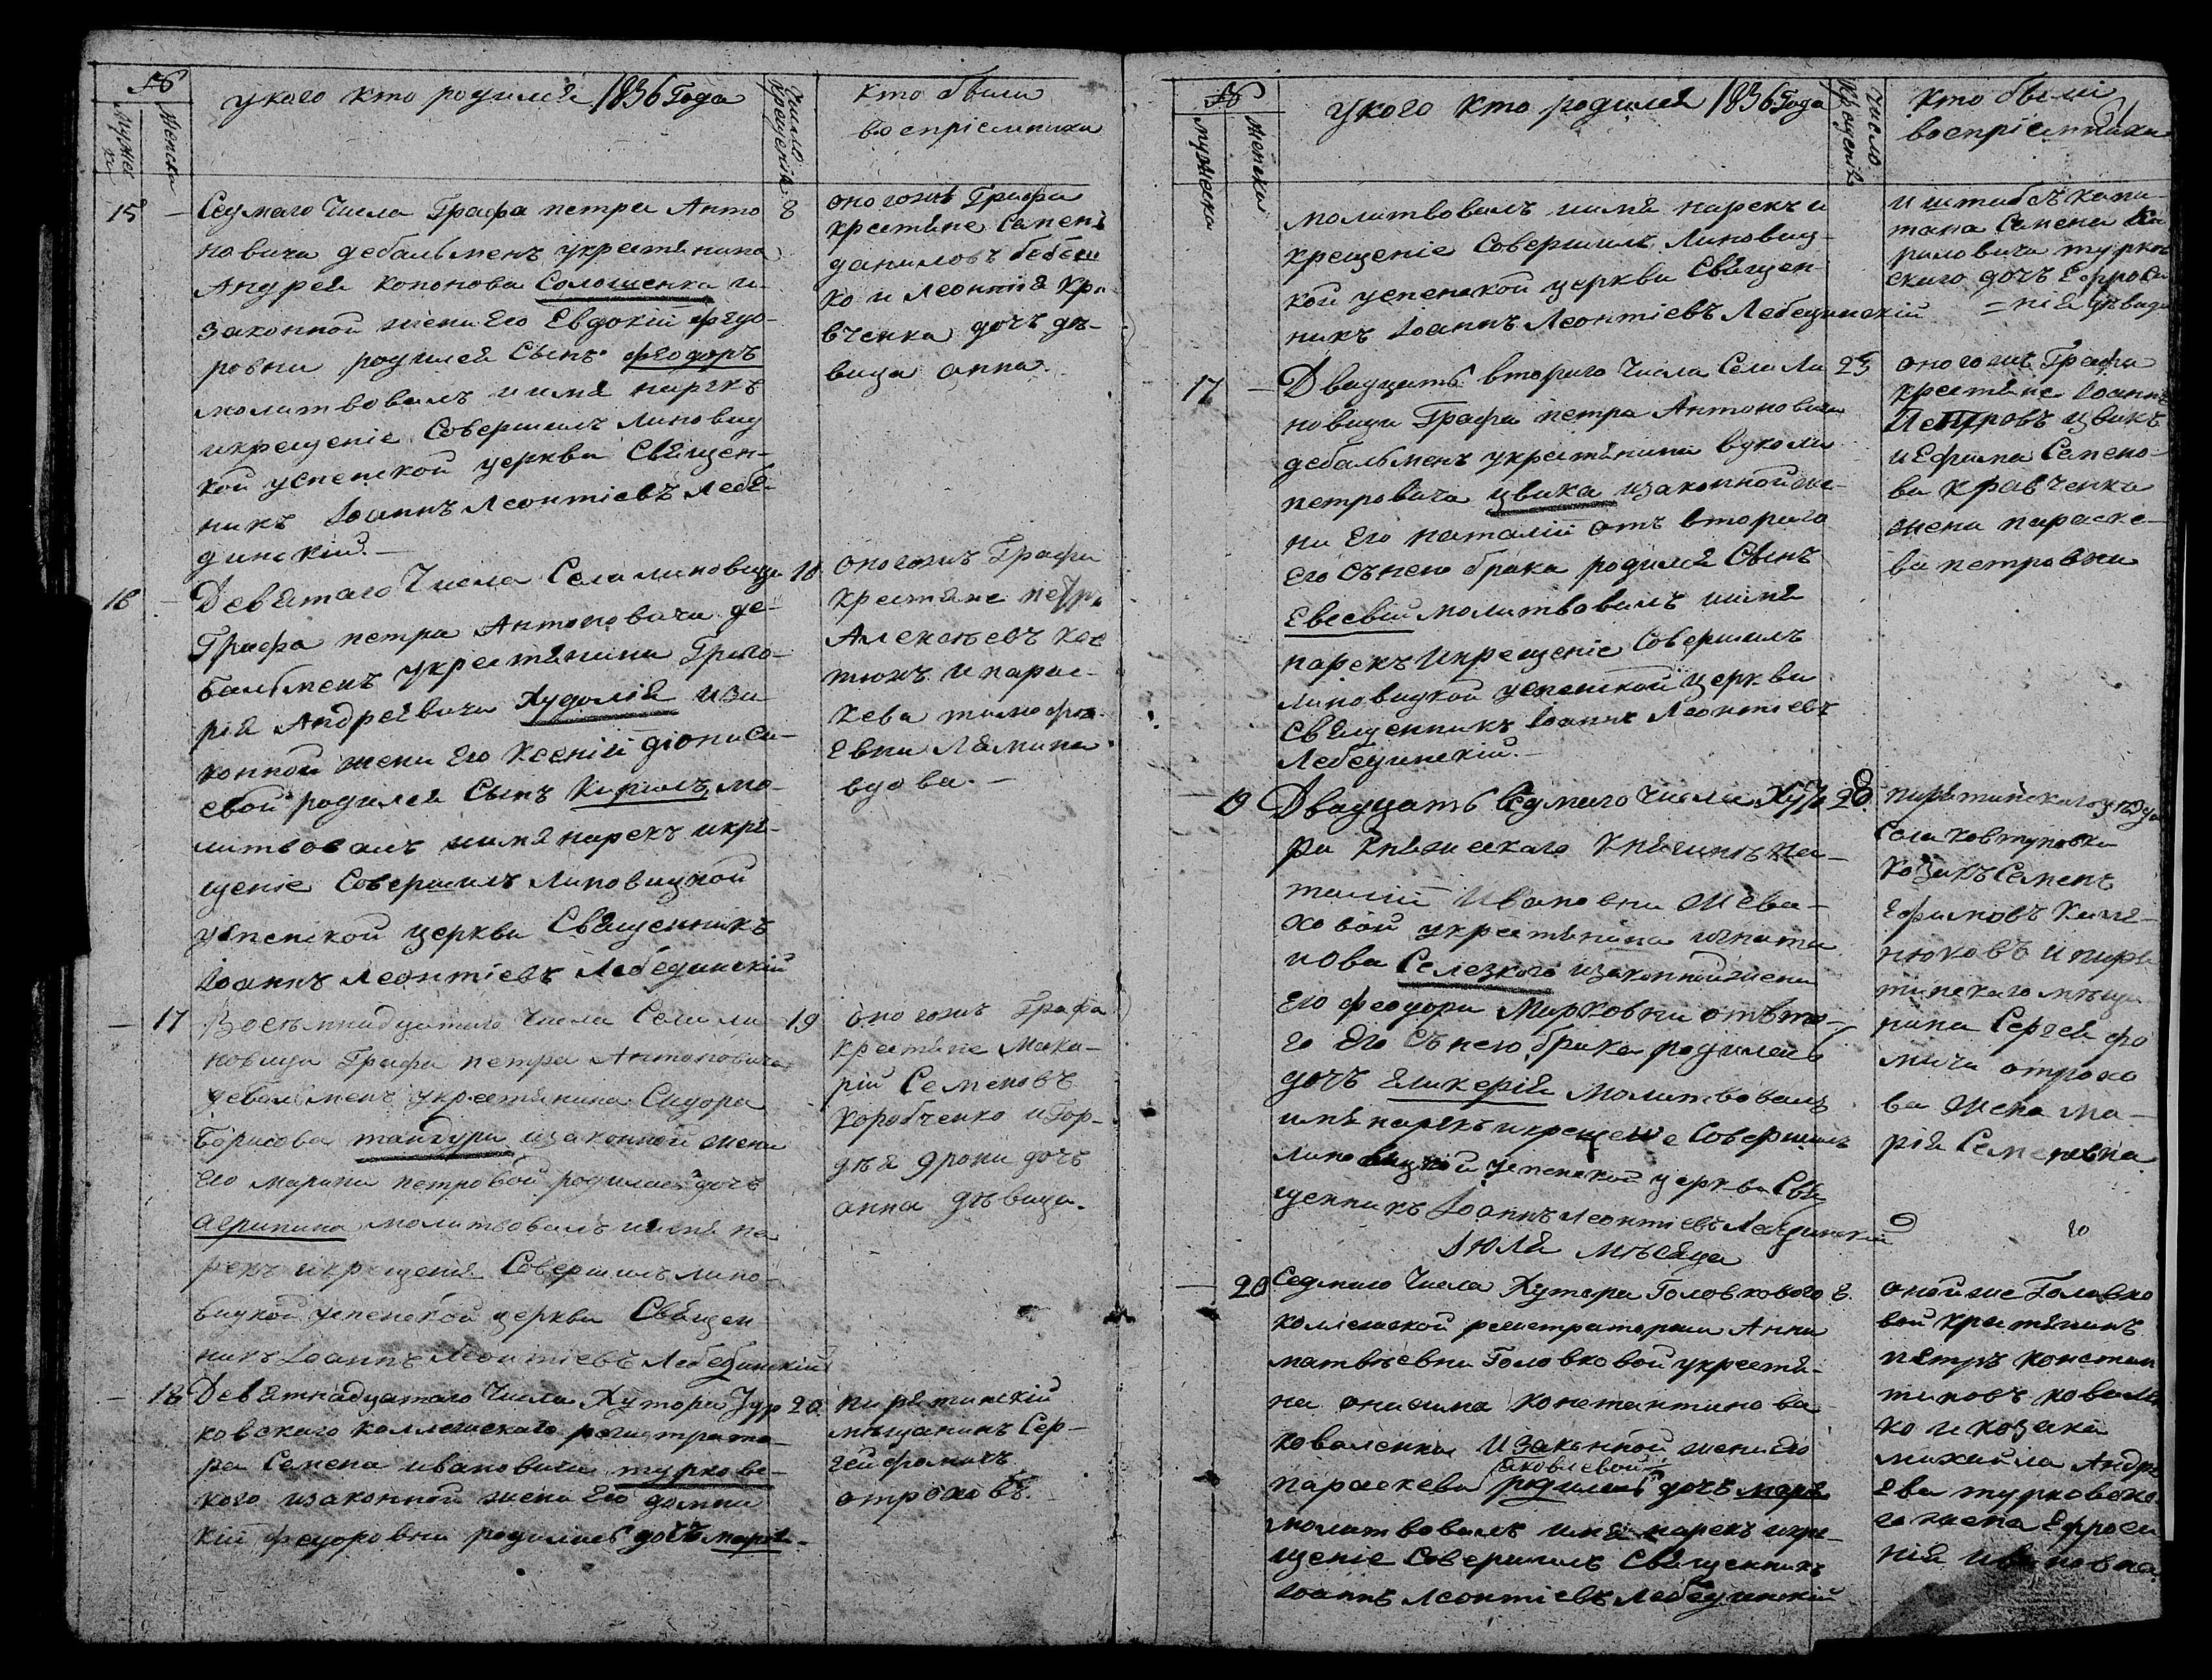 №
мужеска
женска
у кого кто родился 1836 Года
Число крещенія
кто были
воспріемники
15 — Седмаго Числа Графа петра Анто 8
новича дебальменъ украстянина
Андрея кононова Солошенка и
законной жены Его Евдокіи Федо-
ровны родился Сынъ феодоръ
молитвовалъ и имя нарекъ
икрещеніе Совершилъ Линовиц
кой успенской церкви Священ-
никъ Іоаннъ Леонтіевъ Лебе-
динскій. —
оногожъ Графа
крестяне Семенъ
даниловъ бебеш
ко и Леонтія Кра
вченка дочъ дѣ-
вица анна.
16 — Девятаго Числа Села линовицы 10
Графа петра Антоновича де-
бальменъ укрестянина Григо-
рія Андреевича Худолія иза-
конной жены Его Ксеніи діониси-
евой родился Сынъ Кирилъ, мо-
литвовалъ имя нарекъ икре-
щеніе Совершилъ Линовицкой
успенской церкви Священникъ
Іоаннъ леонтіевъ Лебединскій
оногожъ Графа
крестяне петръ
Алексѣевъ кос
тюкъ и парас-
кева тимофе-
евна Лямина
вдова. —
— 17 Восемнадцатаго числа Села ли 19
новицы Графа петра Антоновича
дебальменъ укрестянина Сидора
Борисова тандуры изаконной жены
Его марины петровой родилась дочъ
агрипина молитвовалъ имя на
рекъ икрещенія Совершилъ лино-
вицкой успенской церкви Священ
никъ Іоаннъ Леонтіевъ Лебединскій
оногожъ Графа
крестяне Мака-
рій Семеновъ
коробченко и Гор-
дѣя дроны дочъ
анна дѣвица.
— 18 Девятнадцатаго Числа Хутора Тур 20.
ковского коллежскаго регистрато-
ра Семена ивановича турковс-
кого изаконной жены Его домни
кіи федоровны родилась дочъ марія-
пирятинскій
мѣщанинъ Сер-
гей фомичъ
отроковъ.
№
мужеска
женска
у кого кто родился 1836 Года
Число крещенія
кто были
воспріемники
молитвовалъ имя нарекъ и
крещеніе Совершилъ Линовиц-
кой успенской церкви Священ-
никъ Іоаннъ Леонтіевъ Лебединскій
и штабсъ капи-
тана Семена Ки
риловича турков
скаго дочъ Ефроси
= нія дѣвица
17 — Двадцать втораго Числа Села Ли 25
новицы Графа петра Антоновича
дебальменъ укрестянина вуколы
петровича цвика изаконной же-
ны Его наталіи отъ втораго
Его съ нею брака родился Сынъ
Евсевій молитвовалъ имя
нарекъ икрещеніе Совершилъ
линовицкой успенской церкви
Священникъ Іоаннъ Леонтіевъ
Лебединскій. —
оногожъ Графа
крестяне Іоаннъ
Петровъ цвикъ
и Ефима Семено-
ва кравченка
жена параске-
ва петровна
— 19 Двадцать Седмаго числа Хуто 28.
ра Княжескаго Княгинъ На-
таліи Ивановны Жева-
ховой укрестянина игнати
нова Селезкого изаконной жены
Его феодоры Марковны отъ вто-
го Его Сънею брака родилась
дочъ Гликерія Молитвовалъ
имя нарекъ икрещение Совершилъ
линовицкой успенской церкви Свя
щенникъ Іоаннъ Леонтіевъ Лебединскій
пирятинскаго уѣзда
села Ковтуновки
козакъ Семенъ
Ефимовъ
и пиря
тинскаго мѣща
нина Сергея фо
мича отроко
ва жена Ма-
рія Семеновна
Іюля мѣсяца
— 20 Седмаго Числа Хутора Головкового 8.
коллежской регистраторши Анны
матвѣевны Головковой укрестя-
на онисима константинова
коваленка Изаконной жены Его
параскева яковлевой родилась дочъ марія
молитвовалъ имя нарекъ икре-
щеніе Совершилъ Священникъ
Іоаннъ Леонтіевъ Лебединскій
онойже Головко
вой крестянинъ
петръ констан
тиновъ ковален
ко и козака
михайла Андре
ева турковско
го жена Ефроси
нія ивановна.